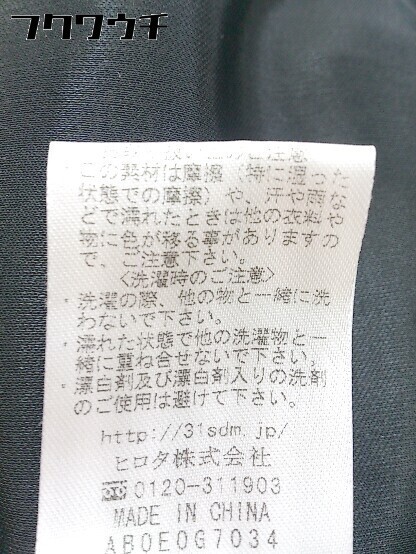 フクワウチ
この素材は摩擦（特に湿った
状態での摩擦）や、汗や雨な
どで濡れたときは他の衣料や
物に色が移る事がありますの
で、ご注意下さい。
〈洗濯時のご注意〉
・洗濯の際、他の物と一緒に洗
わないで下さい。
・濡れた状態で他の洗濯物と一
緒に重ね合せないで下さい。
・漂白剤及び漂白剤入りの洗剤
のご使用は避けて下さい。
http://31sdm.jp/
ヒロタ株式会社
0120-311903
MADE IN CHINA
AB0E0G7034